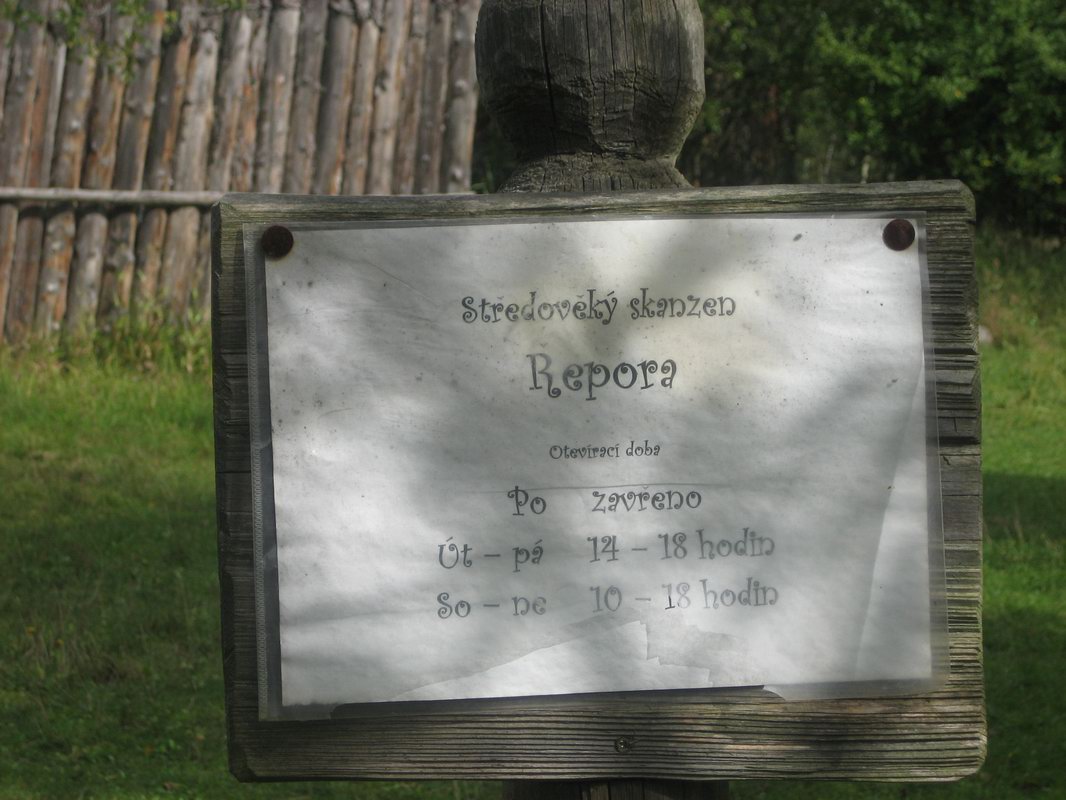 Středověký skanzen
Řepora
Otevírací doba
Po zavřeno
Út – pá 14 – 18 hodin
So – ne 10 – 18 hodin